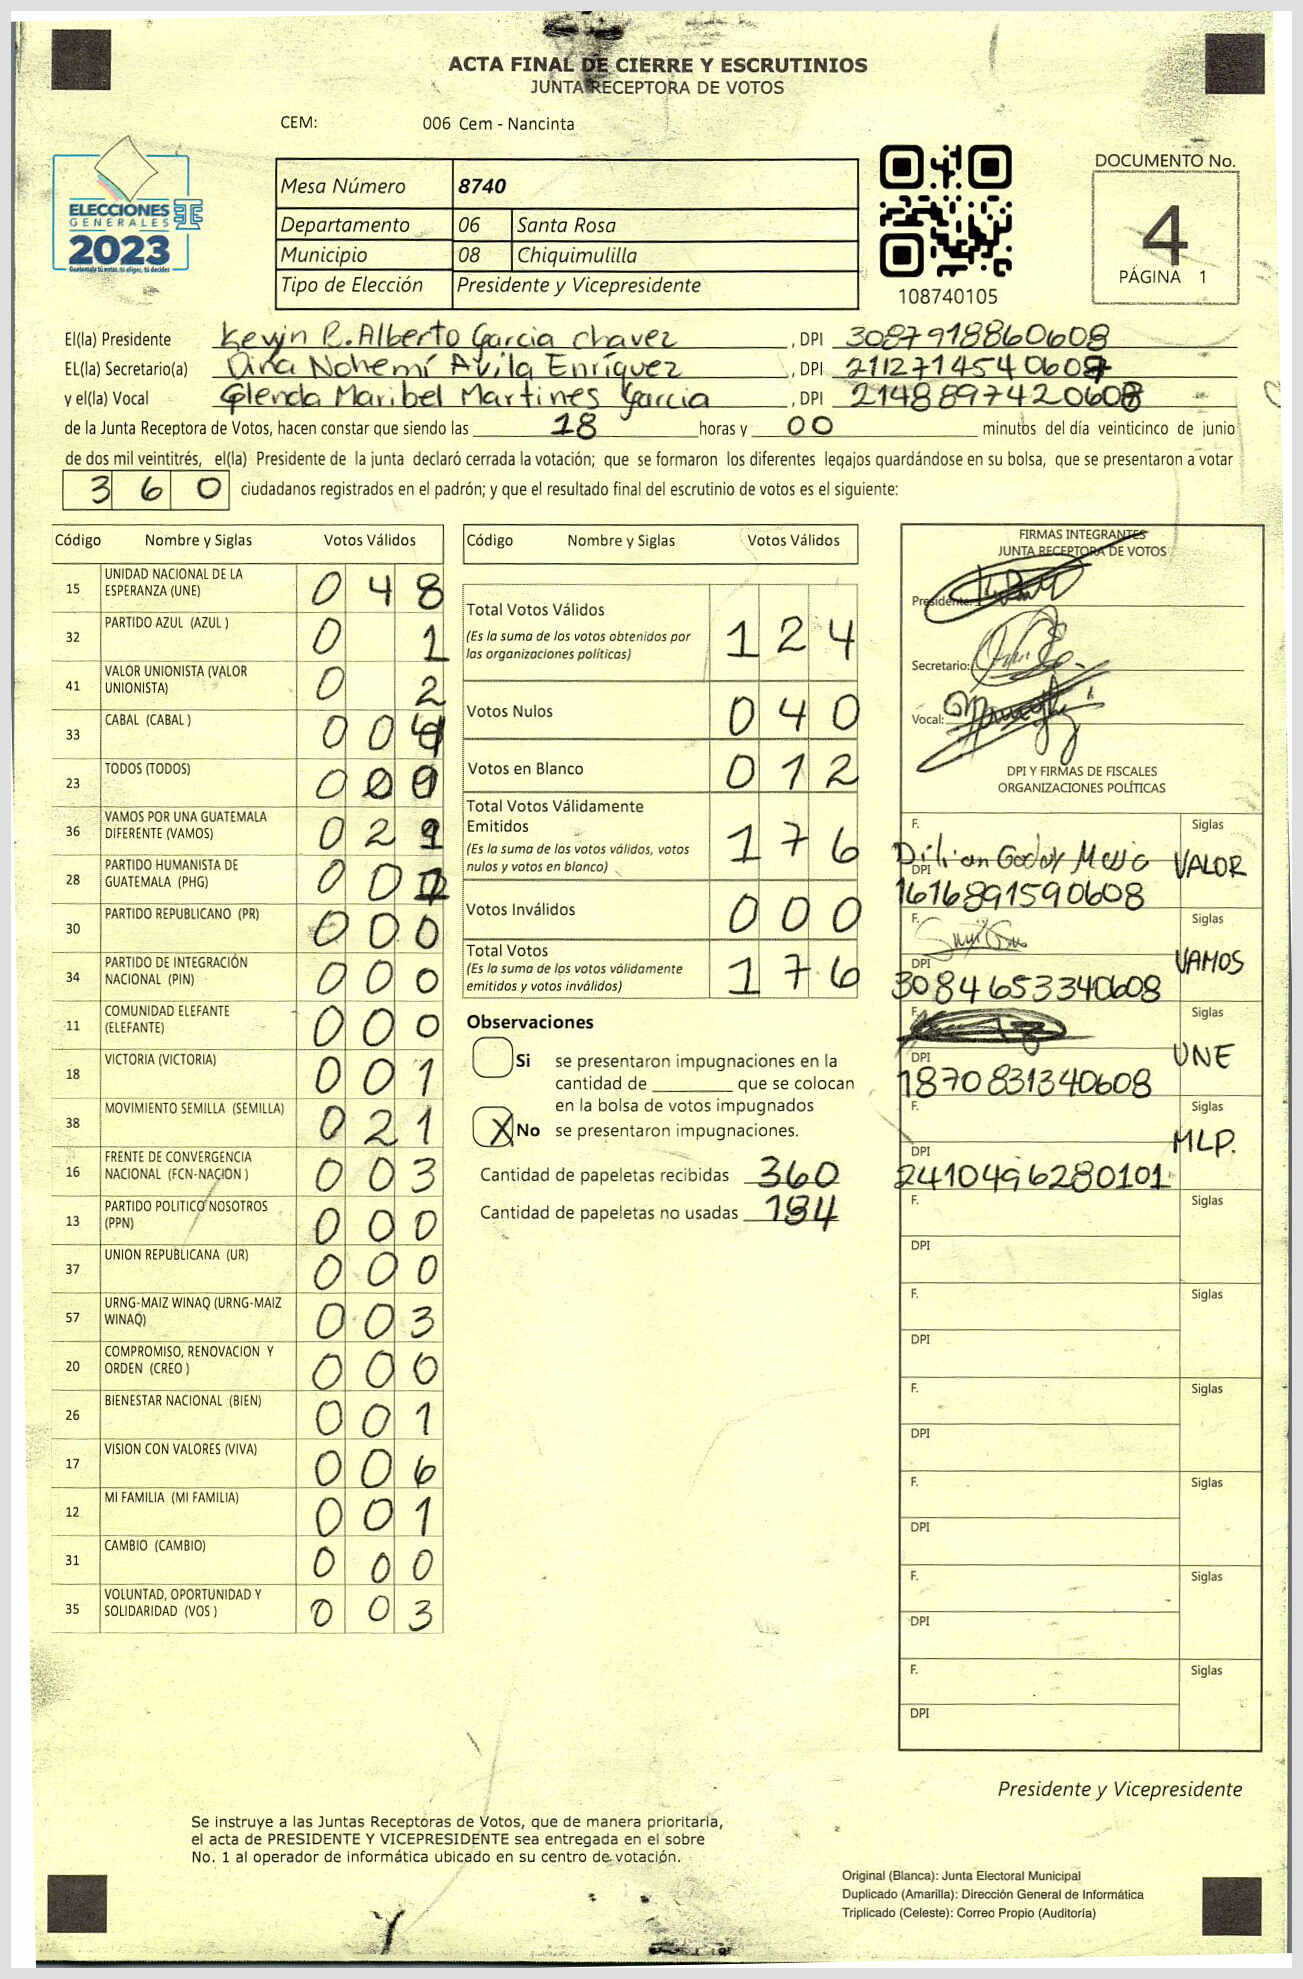 ACTA FINAL DE CIERRE Y ESCRUTINIOS
JUNTA RECEPTORA DE VOTOS
CEM: 006 Cem - Nancinta
ELECCIONES
GENERALES
2023
Guatemala tú votas, tú eliges, tú decides
Mesa Número 8740
Departamento 06 Santa Rosa
Municipio 08 Chiquimulilla
Tipo de Elección Presidente y Vicepresidente
108740105
DOCUMENTO No.
4
PÁGINA 1
El(la) Presidente Kevin R. Alberto Garcia chavez , DPI 3087918860608
EL(la) Secretario(a) Dina Nohemí Avila Enríquez , DPI 2112714540608
y el(la) Vocal Glenda Maribel Martines Garcia , DPI 2148897420608
de la Junta Receptora de Votos, hacen constar que siendo las 18 horas y 00 minutos del día veinticinco de junio
de dos mil veintitrés, el(la) Presidente de la junta declaró cerrada la votación; que se formaron los diferentes legajos quardándose en su bolsa, que se presentaron a votar
360 ciudadanos registrados en el padrón; y que el resultado final del escrutinio de votos es el siguiente:
Código Nombre y Siglas Votos Válidos
15 UNIDAD NACIONAL DE LA
ESPERANZA (UNE) 0 4 8
32 PARTIDO AZUL (AZUL ) 0 1
41 VALOR UNIONISTA (VALOR
UNIONISTA) 0 2
33 CABAL (CABAL ) 0 0
23 TODOS (TODOS) 0 0
36 VAMOS POR UNA GUATEMALA
DIFERENTE (VAMOS) 0 2
28 PARTIDO HUMANISTA DE
GUATEMALA (PHG) 0 0
30 PARTIDO REPUBLICANO (PR) 0 0 0
34 PARTIDO DE INTEGRACIÓN
NACIONAL (PIN) 0 0 0
11 COMUNIDAD ELEFANTE
(ELEFANTE) 0 0 0
18 VICTORIA (VICTORIA) 0 0 1
38 MOVIMIENTO SEMILLA (SEMILLA) 0 2 1
16 FRENTE DE CONVERGENCIA
NACIONAL (FCN-NACION ) 0 0 3
13 PARTIDO POLITICO NOSOTROS
(PPN) 0 0 0
37 UNION REPUBLICANA (UR) 0 0 0
57 URNG-MAIZ WINAQ (URNG-MAIZ
WINAQ) 0 0 3
20 COMPROMISO, RENOVACION Y
ORDEN (CREO ) 0 0 0
26 BIENESTAR NACIONAL (BIEN) 0 0 1
17 VISION CON VALORES (VIVA) 0 0 6
12 MI FAMILIA (MI FAMILIA) 0 0 1
31 CAMBIO (CAMBIO) 0 0 0
35 VOLUNTAD, OPORTUNIDAD Y
SOLIDARIDAD (VOS ) 0 0 3
Código Nombre y Siglas Votos Válidos
Total Votos Válidos 1 2 4
(Es la suma de los votos obtenidos por
las organizaciones políticas)
Votos Nulos 0 4 0
Votos en Blanco 0 1 2
Total Votos Válidamente
Emitidos 1 7 6
(Es la suma de los votos válidos, votos
nulos y votos en blanco)
Votos Inválidos 0 0 0
Total Votos 1 7 6
(Es la suma de los votos válidamente
emitidos y votos inválidos)
Observaciones
Si se presentaron impugnaciones en la
cantidad de ________ que se colocan
en la bolsa de votos impugnados
X No se presentaron impugnaciones.
Cantidad de papeletas recibidas 360
Cantidad de papeletas no usadas 184
FIRMAS INTEGRANTES
JUNTA RECEPTORA DE VOTOS
Presidente:
Secretario:
Vocal:
DPI Y FIRMAS DE FISCALES
ORGANIZACIONES POLÍTICAS
F. Siglas
Dilian Godoy VALOR
DPI 1616891590608
F. Siglas
VAMOS
DPI 3084653340608
F. Siglas
UNE
DPI 1870831340608
F. Siglas
MLP.
DPI 2410496280101
F. Siglas
DPI
F. Siglas
DPI
F. Siglas
DPI
F. Siglas
DPI
F. Siglas
DPI
F. Siglas
DPI
Presidente y Vicepresidente
Se instruye a las Juntas Receptoras de Votos, que de manera prioritaria,
el acta de PRESIDENTE Y VICEPRESIDENTE sea entregada en el sobre
No. 1 al operador de informática ubicado en su centro de votación.
Original (Blanca): Junta Electoral Municipal
Duplicado (Amarilla): Dirección General de Informática
Triplicado (Celeste): Correo Propio (Auditoría)